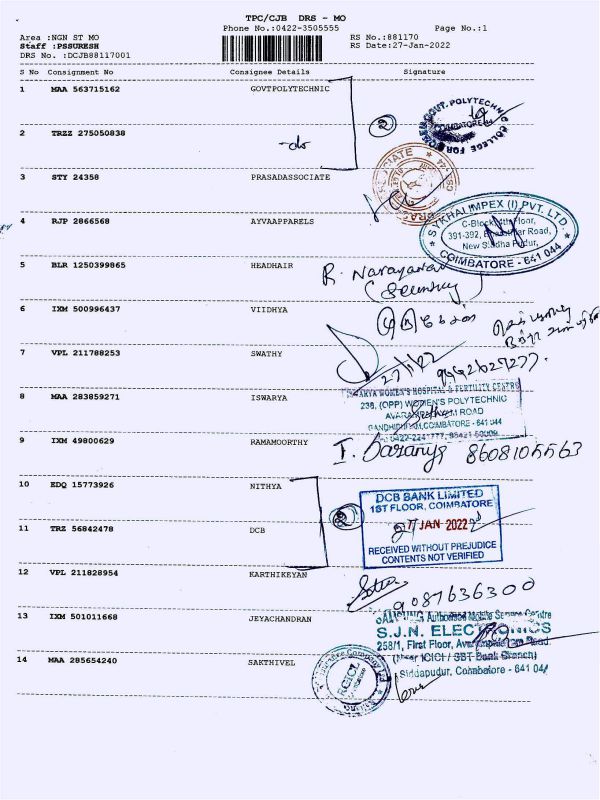 TPC/CJB DRS - MO
Phone No.:0422-3505555
Page No.:1
Area :NGN ST MO
RS No.:881170
Staff :PSSURESH
RS Date:27-Jan-2022
DRS No. :DCJB88117001
S No Consignment No Consignee Details Signature
1 MAA 563715162 GOVTPOLYTECHNIC
2 TRZZ 275050838
-do
2
GOVT.POLYTECHNIC COLLEGE FOR WOMEN
COIMBATORE
3 STY 24358 PRASADASSOCIATE
4 RJP 2866568 AYVAAPPARELS
SYKHAI IMPEX (I) PVT. LTD.
C-Block 4th Floor,
391-392, Road,
New Sidha Pudur,
COIMBATORE - 641 044
5 BLR 1250399865 HEADHAIR
R. Narayanan
(Security)
6 IXM 500996437 VIIDHYA
7 VPL 211788253 SWATHY
27/1/22
8 MAA 283859271 ISWARYA
WOMEN'S HOSPITAL & FERTILITY CENTRE
238, (OPP) WOMEN'S POLYTECHNIC
ROAD
COIMBATORE - 641 044
9 IXM 49800629 RAMAMOORTHY
I. Saranya 8608105563
10 EDQ 15773926 NITHYA
11 TRZ 56842478 DCB
2
DCB BANK LIMITED
1ST FLOOR, COIMBATORE
27 JAN 2022
RECEIVED WITHOUT PREJUDICE
CONTENTS NOT VERIFIED
12 VPL 211828954 KARTHIKEYAN
9087636300
13 IXM 501011668 JEYACHANDRAN
SAMSUNG Authorised Mobile Service Centre
S.J.N. ELECTRONICS
258/1, First Floor, Road
(Near ICICI / SBT Bank Branch)
Siddapudur, Coimbatore - 641 044
14 MAA 285654240 SAKTHIVEL
RGICL